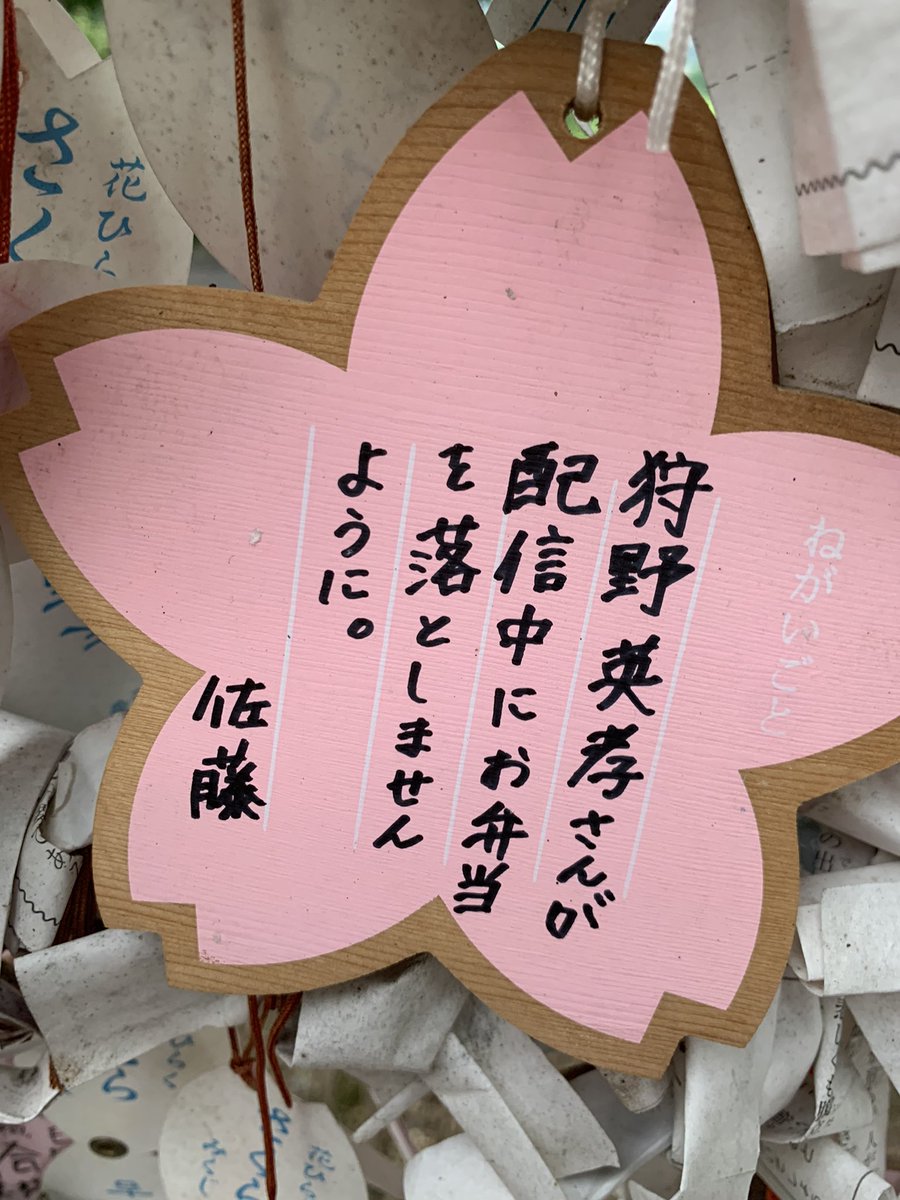 ねがいごと
狩野英孝さんが
配信中にお弁当
を落としません
ように。
佐藤
花びら
さくら